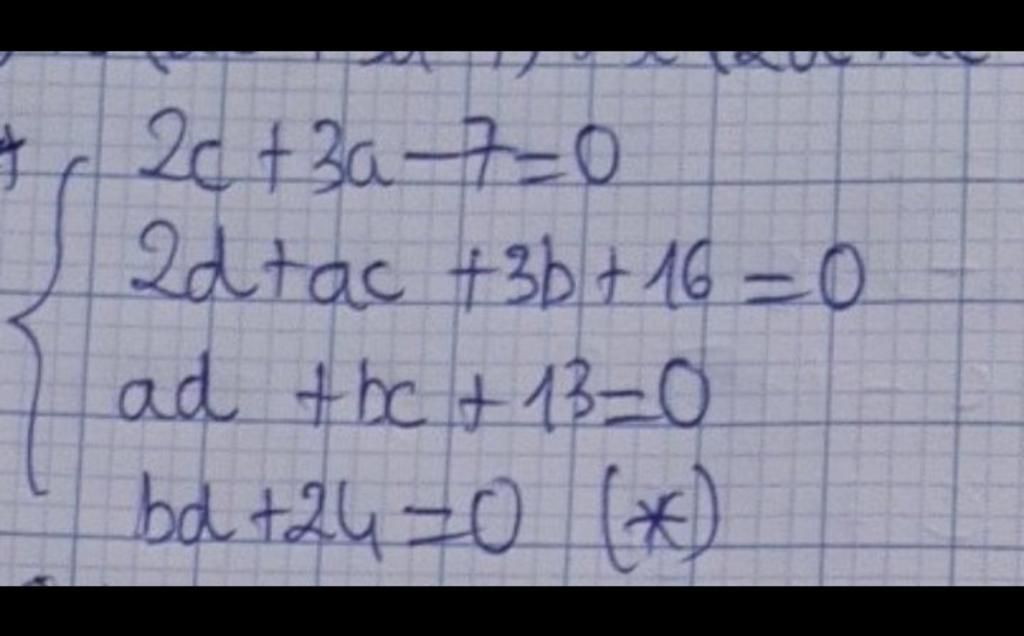 2c + 3a - 7 = 0
2d + ac + 3b + 16 = 0
ad + bc + 13 = 0
bd + 24 = 0 (*)